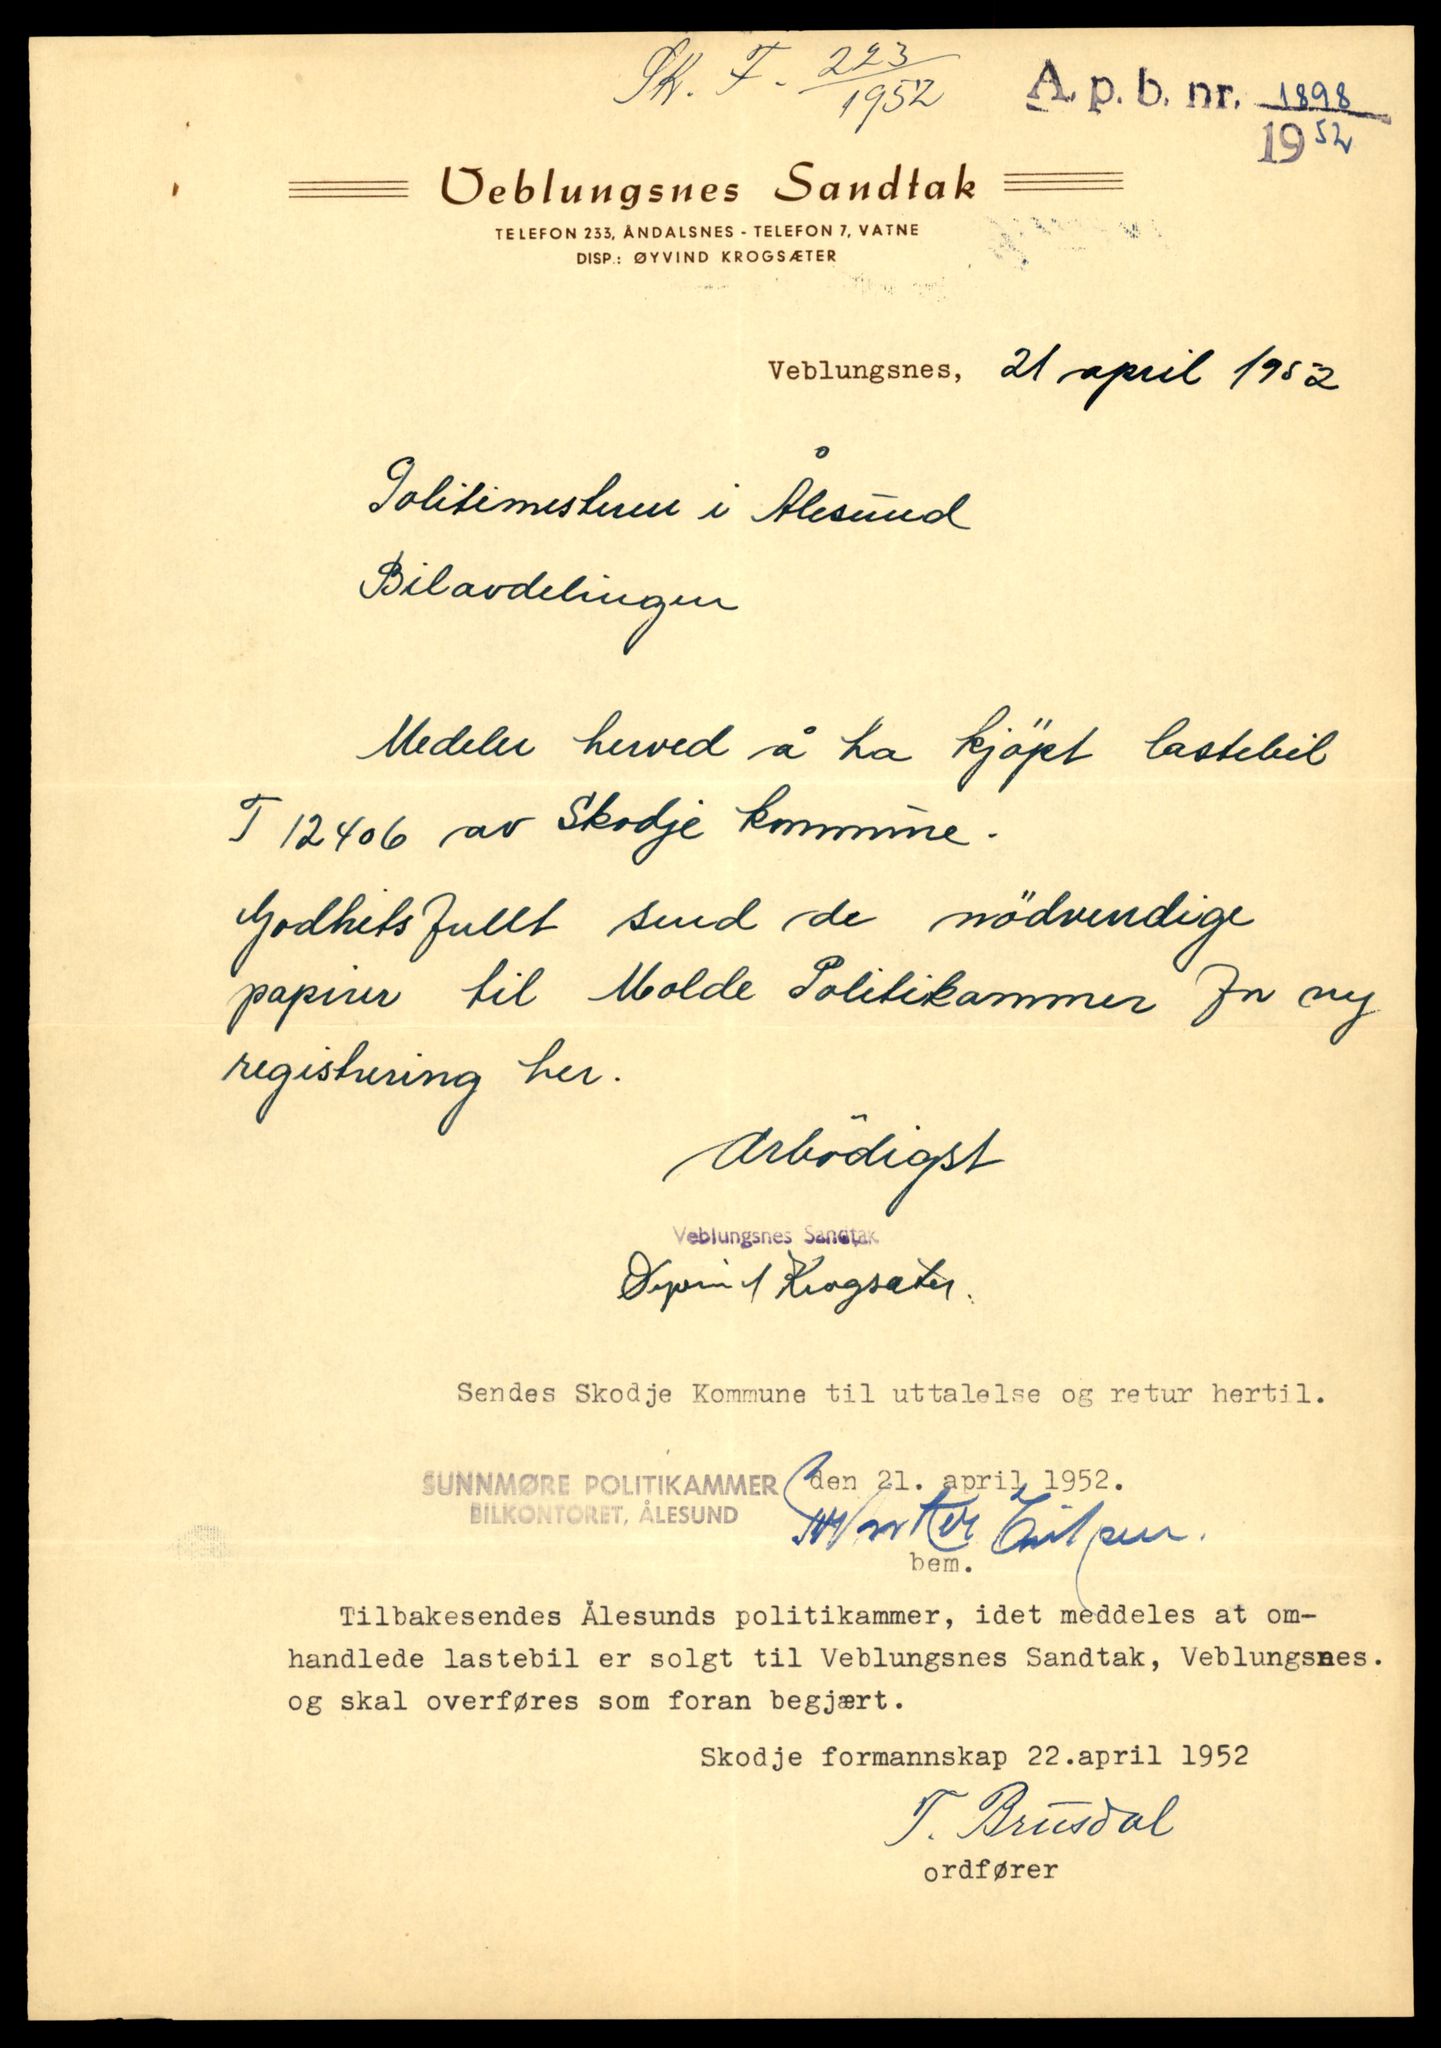 SK. F. 223/1952
A. p. b. nr. 1898
1952
Veblungsnes Sandtak
TELEFON 233, ÅNDALSNES - TELEFON 7, VATNE
DISP.: ØYVIND KROGSÆTER
Veblungsnes, 21 april 1952
Politimesteren i Ålesund
Bilavdelingen
Medeler herved å ha kjöpt lastebil
T 12406 av Skodje kommune.
Godhetsfullt send de nödvendige
papirer til Molde Politikammer for ny
registrering her.
Arbödigst
Veblungsnes Sandtak
Öyvind Krogsæter.
Sendes Skodje Kommune til uttalelse og retur hertil.
SUNNMØRE POLITIKAMMER den 21. april 1952.
BILKONTORET, ÅLESUND
bem.
Tilbakesendes Ålesunds politikammer, idet meddeles at om-
handlede lastebil er solgt til Veblungsnes Sandtak, Veblungsnes.
og skal overføres som foran begjært.
Skodje formannskap 22.april 1952
T. Brusdal
ordfører